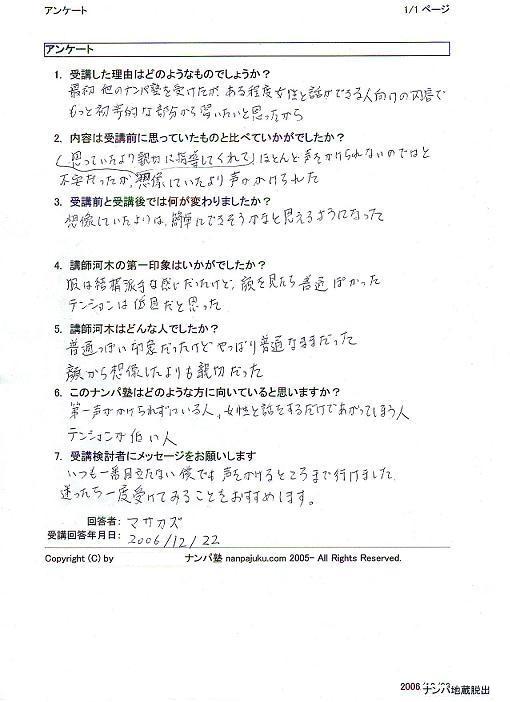 アンケート
1/1 ページ
アンケート
1. 受講した理由はどのようなものでしょうか？
最初 他のナンパ塾を受けたが、ある程度女性と話ができる人向けの内容で
もっと初歩的な部分から習いたいと思ったから
2. 内容は受講前に思っていたものと比べていかがでしたか？
(思っていたより親切に指導してくれて) ほとんど声をかけられないのではと
不安だったが、想像していたより声がかけられた
3. 受講前と受講後では何が変わりましたか？
想像していたよりは、簡単にできそうかなと思えるようになった
4. 講師河木の第一印象はいかがでしたか？
服は結構派手な感じだったけど、顔を見たら普通ぽかった
テンションは低目だと思った
5. 講師河木はどんな人でしたか？
普通っぽい印象だったけど やっぱり普通なままだった
顔から想像したよりも親切だった
6. このナンパ塾はどのような方に向いていると思いますか？
第一声がかけられずにいる人、女性と話をするだけであがってしまう人
テンションが低い人
7. 受講検討者にメッセージをお願いします
いつも一番目立たない僕でも 声をかけるところまで行けました
迷ったら一度受けてみることをおすすめします。
回答者： マサカズ
受講回答年月日： 2006/12/22
Copyright (C) by ナンパ塾 nanpajuku.com 2005- All Rights Reserved.
2006 ナンパ地蔵脱出